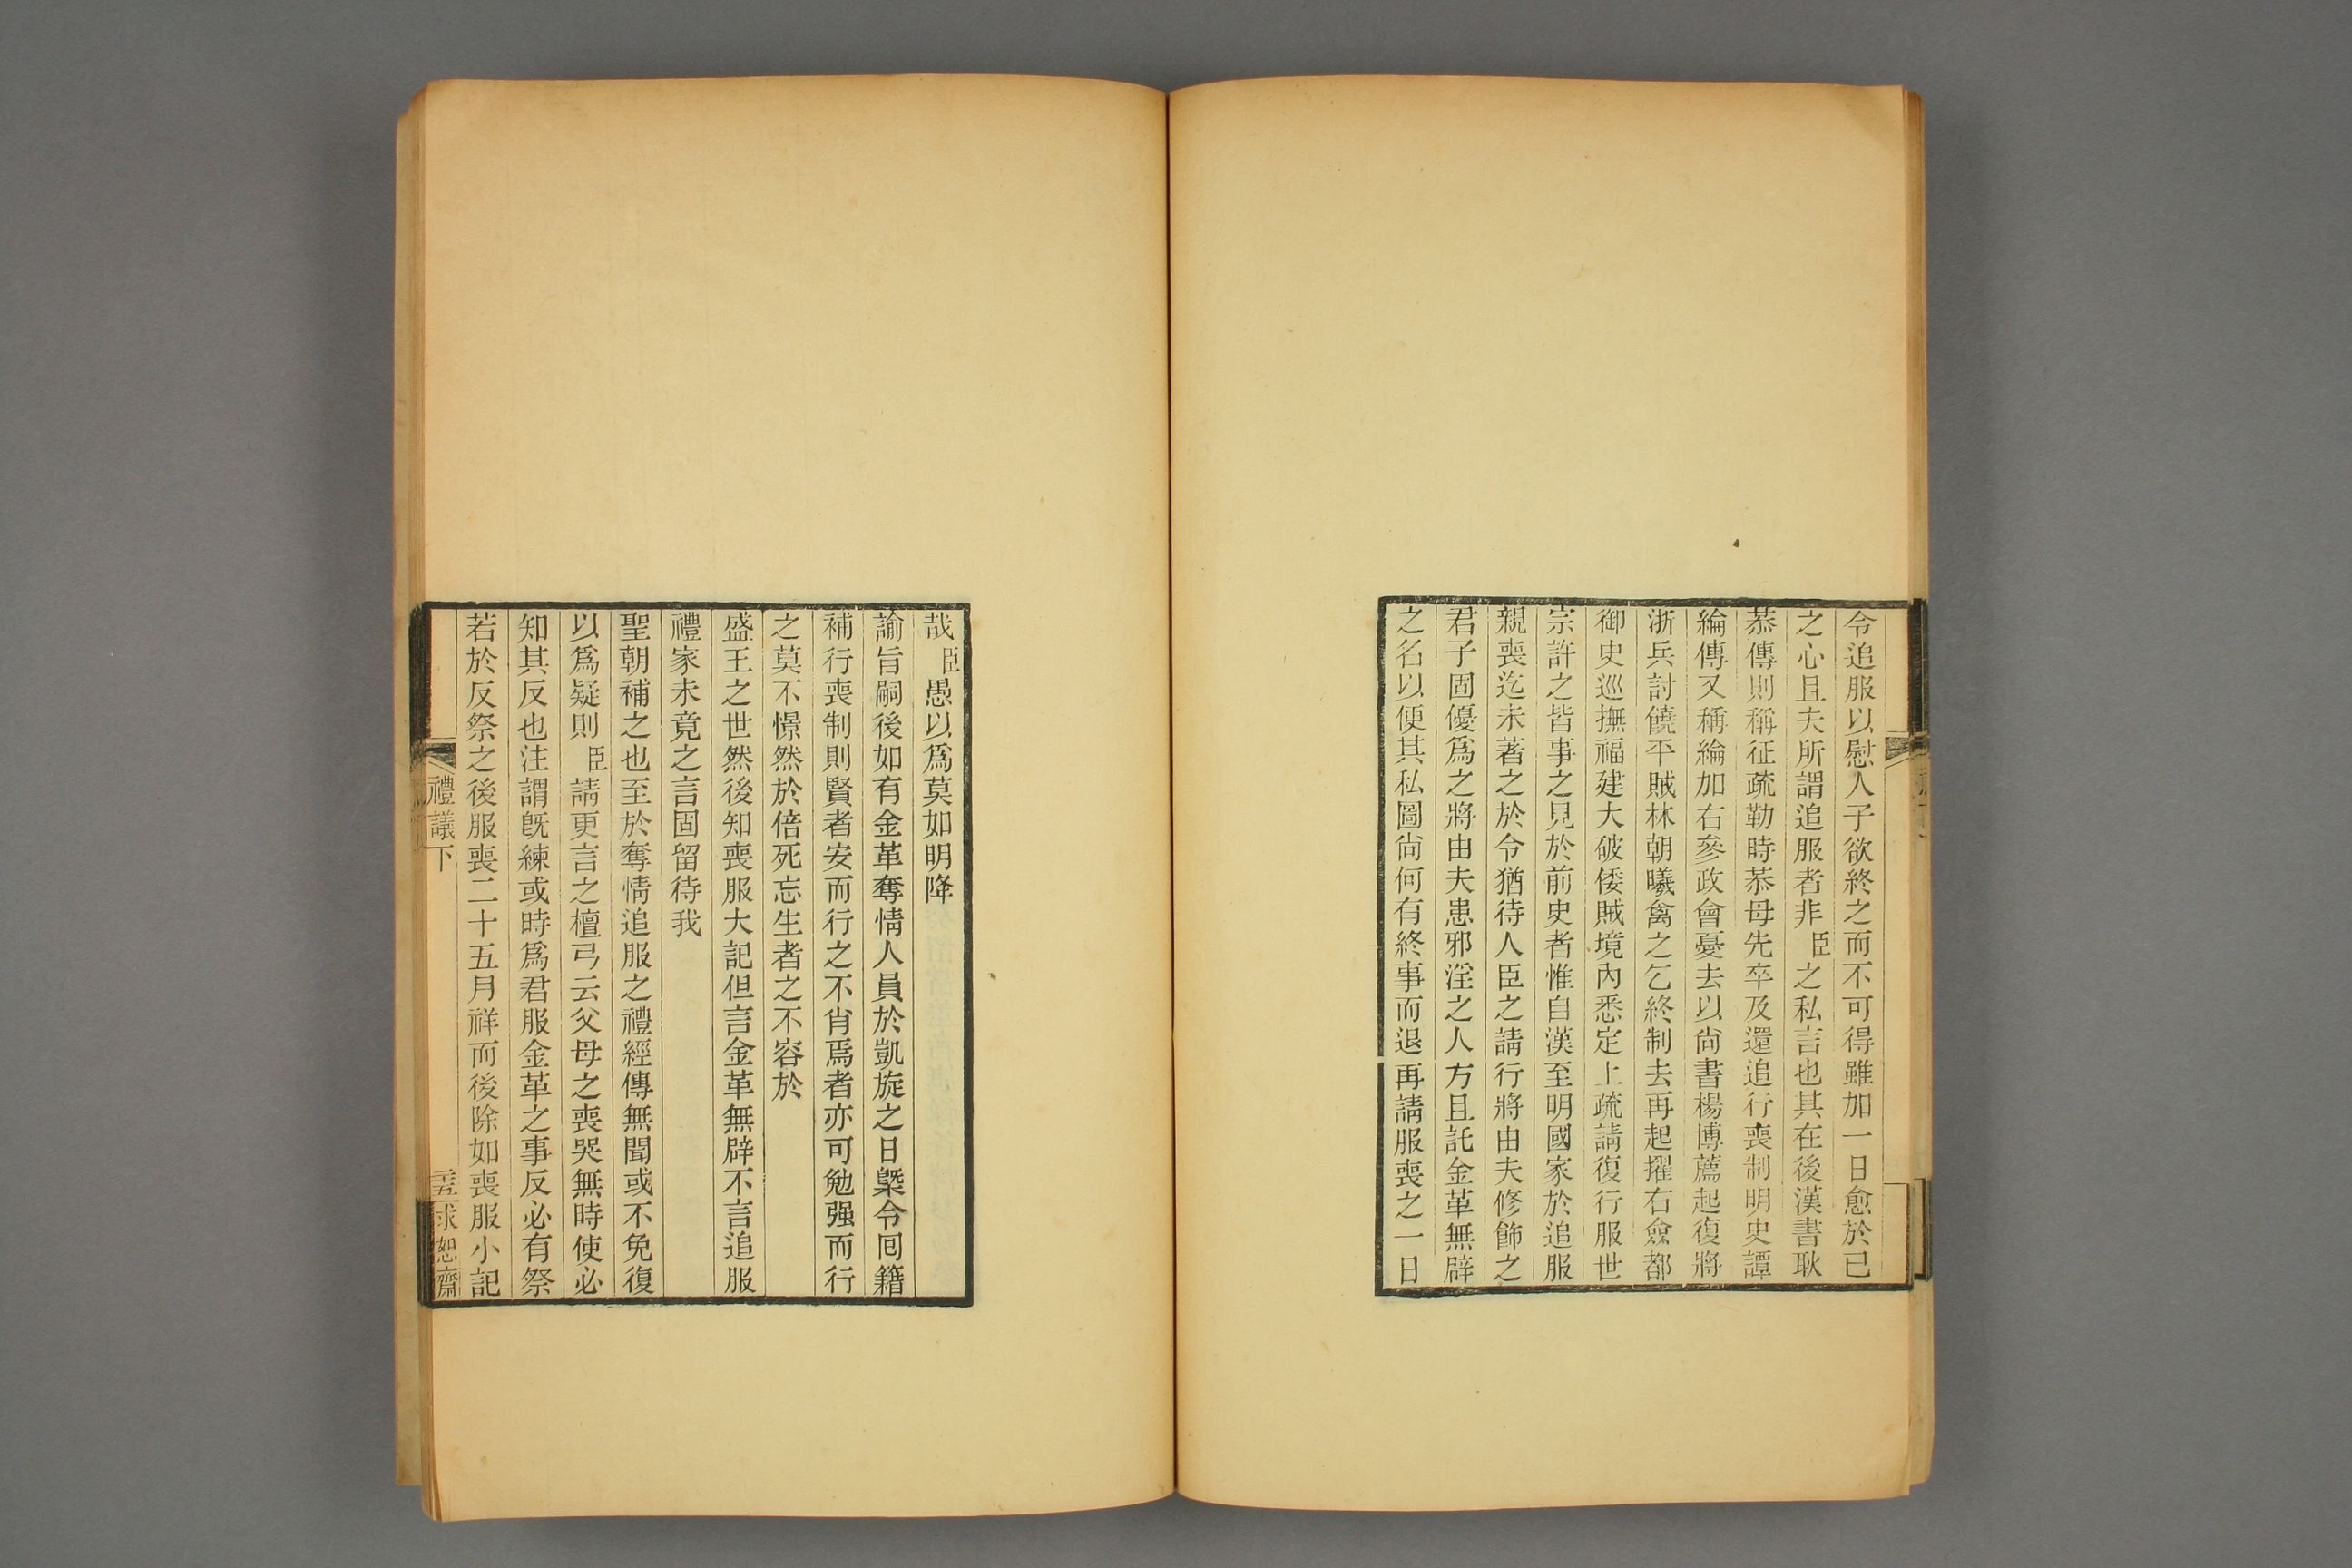 令追服以慰人子欲終之而不可得雖加一日愈於已
之心且夫所謂追服者非臣之私言也其在後漢書耿
恭傳則稱征疏勒時恭母先卒及還追行喪制明史譚
綸傳又稱綸加右參政會憂去以尙書楊博薦起復將
浙兵討饒平賊林朝曦禽之乞終制去再起擢右僉都
御史巡撫福建大破倭賊境內悉定上疏請復行服世
宗許之皆事之見於前史者惟自漢至明國家於追服
親喪迄未著之於令猶待人臣之請行將由夫修飾之
君子固優爲之將由夫患邪淫之人方且託金革無辟
之名以便其私圖尙何有終事而退再請服喪之一日
哉臣愚以爲莫如明降
諭旨嗣後如有金革奪情人員於凱旋之日槩令囘籍
補行喪制則賢者安而行之不肖焉者亦可勉强而行
之莫不憬然於倍死忘生者之不容於
盛王之世然後知喪服大記但言金革無辟不言追服
禮家未竟之言固留待我
聖朝補之也至於奪情追服之禮經傳無聞或不免復
以爲疑則臣請更言之檀弓云父母之喪哭無時使必
知其反也注謂旣練或時爲君服金革之事反必有祭
若於反祭之後服喪二十五月祥而後除如喪服小記
禮議下
二五
求恕齋